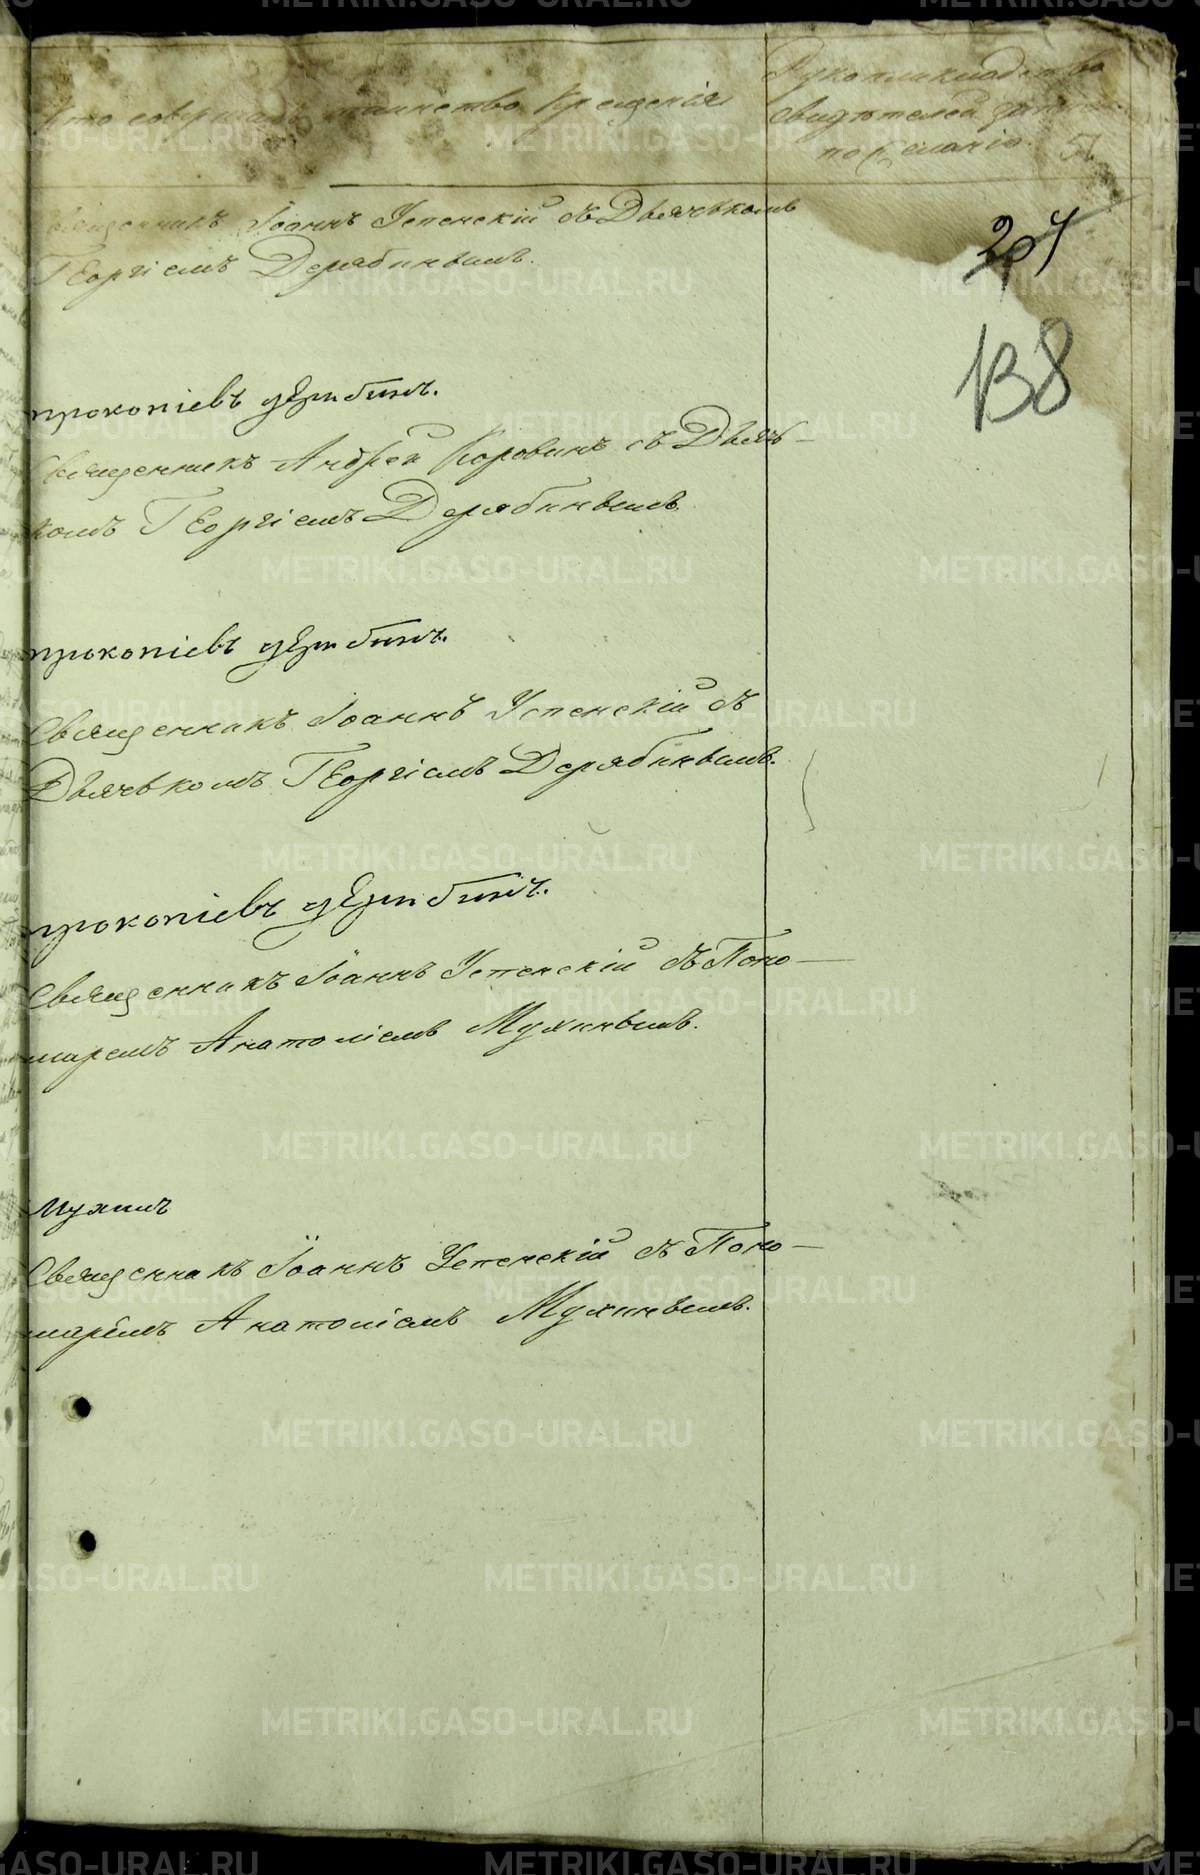 Кто совершалъ таинство Крещенія
Рукоприкладство
свидѣтелей записи
по желанію.
57
Священникъ Іоаннъ Успенскій съ Дьячькомъ
Георгіемъ Дерябинымъ.
207
138
прокопіевъ дерябинъ.
Священникъ Андрей Коровинъ съ Дьячь-
комъ Георгіемъ Дерябинымъ
прокопіевъ дерябинъ.
Священникъ Іоаннъ Успенскій съ
Дьячькомъ Георгіемъ Дерябинымъ.
прокопіевъ дерябинъ.
Священникъ Іоаннъ Успенскій съ Поно-
маремъ Анатоліемъ Мухинымъ.
мухинъ
Священникъ Іоаннъ Успенскій съ Поно-
маремъ Анатоліемъ Мухинымъ.
METRIKI.GASO-URAL.RU